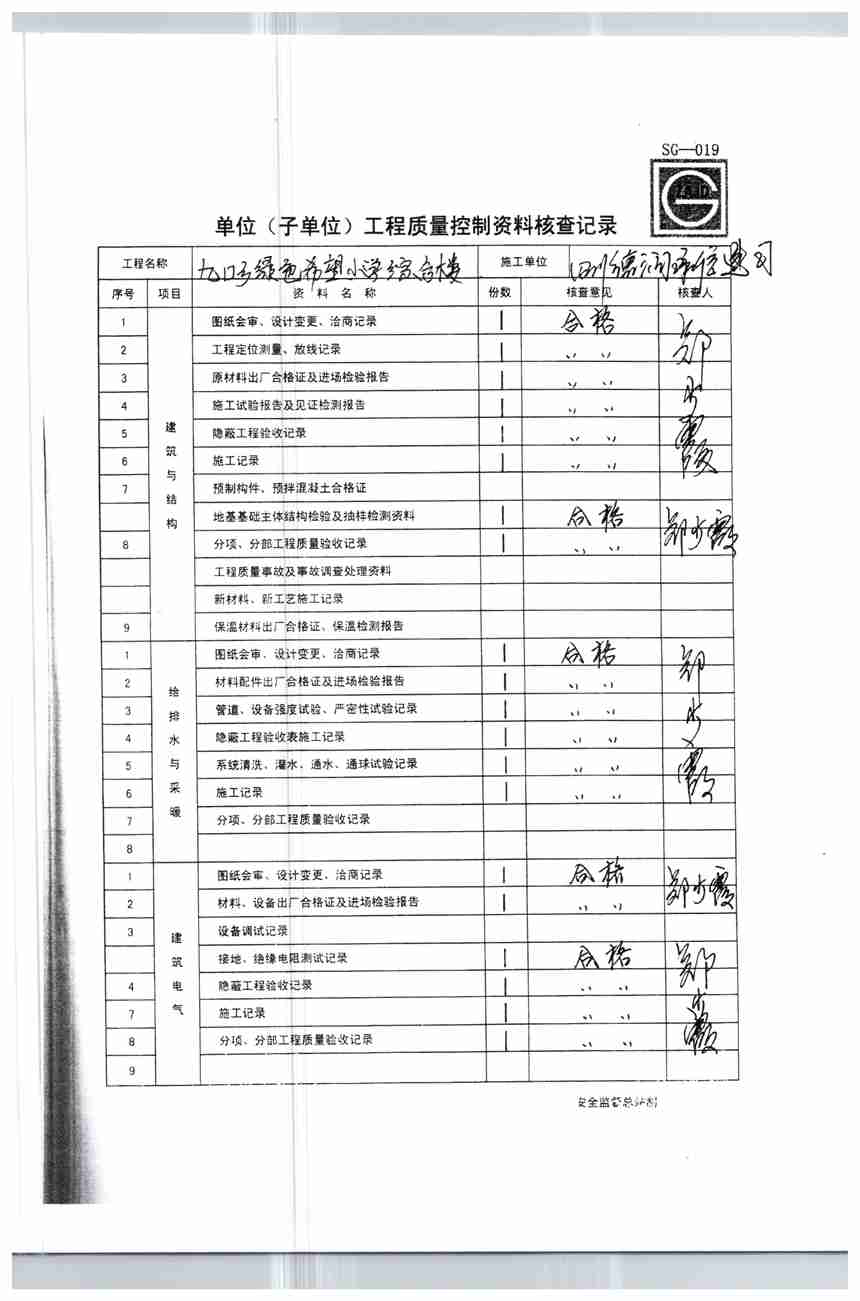 SG—019
单位（子单位）工程质量控制资料核查记录
工程名称 九口子绿色希望小学综合楼 施工单位
序号 项目 资料名称 份数 核查意见 核查人
建筑与结构
1 图纸会审、设计变更、洽商记录 1 合格 郑
2 工程定位测量、放线记录 1 〃 〃
3 原材料出厂合格证及进场检验报告 1 〃 〃
4 施工试验报告及见证检测报告 1 〃 〃 步
5 隐蔽工程验收记录 1 〃 〃 霞
6 施工记录 1 〃 〃
7 预制构件、预拌混凝土合格证
地基基础主体结构检验及抽样检测资料 1 合格 郑步霞
8 分项、分部工程质量验收记录 1 〃 〃
工程质量事故及事故调查处理资料
新材料、新工艺施工记录
9 保温材料出厂合格证、保温检测报告
给排水与采暖
1 图纸会审、设计变更、洽商记录 1 合格 郑
2 材料配件出厂合格证及进场检验报告 1 〃 〃
3 管道、设备强度试验、严密性试验记录 1 〃 〃 步
4 隐蔽工程验收表施工记录 1 〃 〃
5 系统清洗、灌水、通水、通球试验记录 1 〃 〃 霞
6 施工记录 1 〃 〃
7 分项、分部工程质量验收记录
8
建筑电气
1 图纸会审、设计变更、洽商记录 1 合格 郑步霞
2 材料、设备出厂合格证及进场检验报告 1 〃 〃
3 设备调试记录
接地、绝缘电阻测试记录 1 合格 郑
4 隐蔽工程验收记录 1 〃 〃
7 施工记录 1 〃 〃 步
8 分项、分部工程质量验收记录 1 〃 〃 霞
9
安全监督总站制